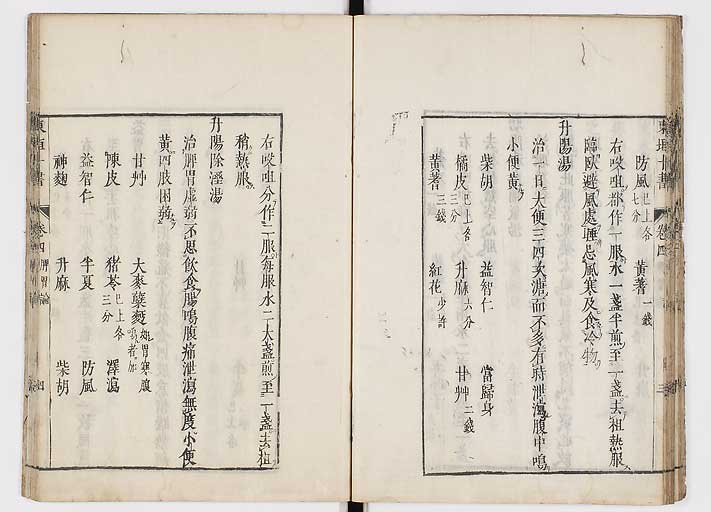 防風已上各七分　黄蓍一錢
右㕮咀都作一服水一盞半煎至一盞去柤熱服
臨臥避風處睡忌風寒及食冷物
升陽湯
治一日大便三四次溏而不多有時泄瀉腹中鳴
小便黄
柴胡　益智仁　當歸身
橘皮已上各三分　升麻六分　甘艸二錢
黄蓍三錢　紅花少許
右㕮咀分作二服每服水二大盞煎至一盞去柤
稍熱服
升陽除溼湯
治脾胃虚弱不思飲食腸鳴腹痛泄瀉無度小便
黄四肢困弱
甘艸　大麥蘖麫如胃寒腹鳴者加
陳皮　猪苓已上各三分　澤瀉
益智仁　半夏　防風
神麴　升麻　柴胡
卷四
卷四　脾胃論